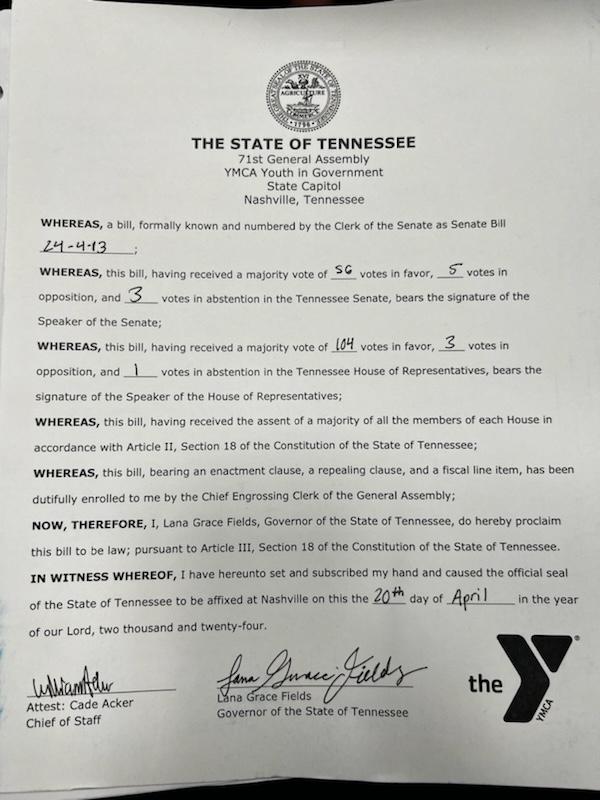 THE GREAT SEAL OF THE STATE OF TENNESSEE
XVI
AGRICULTURE
COMMERCE
1796
THE STATE OF TENNESSEE
71st General Assembly
YMCA Youth in Government
State Capitol
Nashville, Tennessee
WHEREAS, a bill, formally known and numbered by the Clerk of the Senate as Senate Bill
24-4-13 ;
WHEREAS, this bill, having received a majority vote of 56 votes in favor, 5 votes in
opposition, and 3 votes in abstention in the Tennessee Senate, bears the signature of the
Speaker of the Senate;
WHEREAS, this bill, having received a majority vote of 104 votes in favor, 3 votes in
opposition, and 1 votes in abstention in the Tennessee House of Representatives, bears the
signature of the Speaker of the House of Representatives;
WHEREAS, this bill, having received the assent of a majority of all the members of each House in
accordance with Article II, Section 18 of the Constitution of the State of Tennessee;
WHEREAS, this bill, bearing an enactment clause, a repealing clause, and a fiscal line item, has been
dutifully enrolled to me by the Chief Engrossing Clerk of the General Assembly;
NOW, THEREFORE, I, Lana Grace Fields, Governor of the State of Tennessee, do hereby proclaim
this bill to be law; pursuant to Article III, Section 18 of the Constitution of the State of Tennessee.
IN WITNESS WHEREOF, I have hereunto set and subscribed my hand and caused the official seal
of the State of Tennessee to be affixed at Nashville on this the 20th day of April in the year
of our Lord, two thousand and twenty-four.
Lana Grace Fields
Attest: Cade Acker
Chief of Staff
Lana Grace Fields
Governor of the State of Tennessee
the Y ®
YMCA